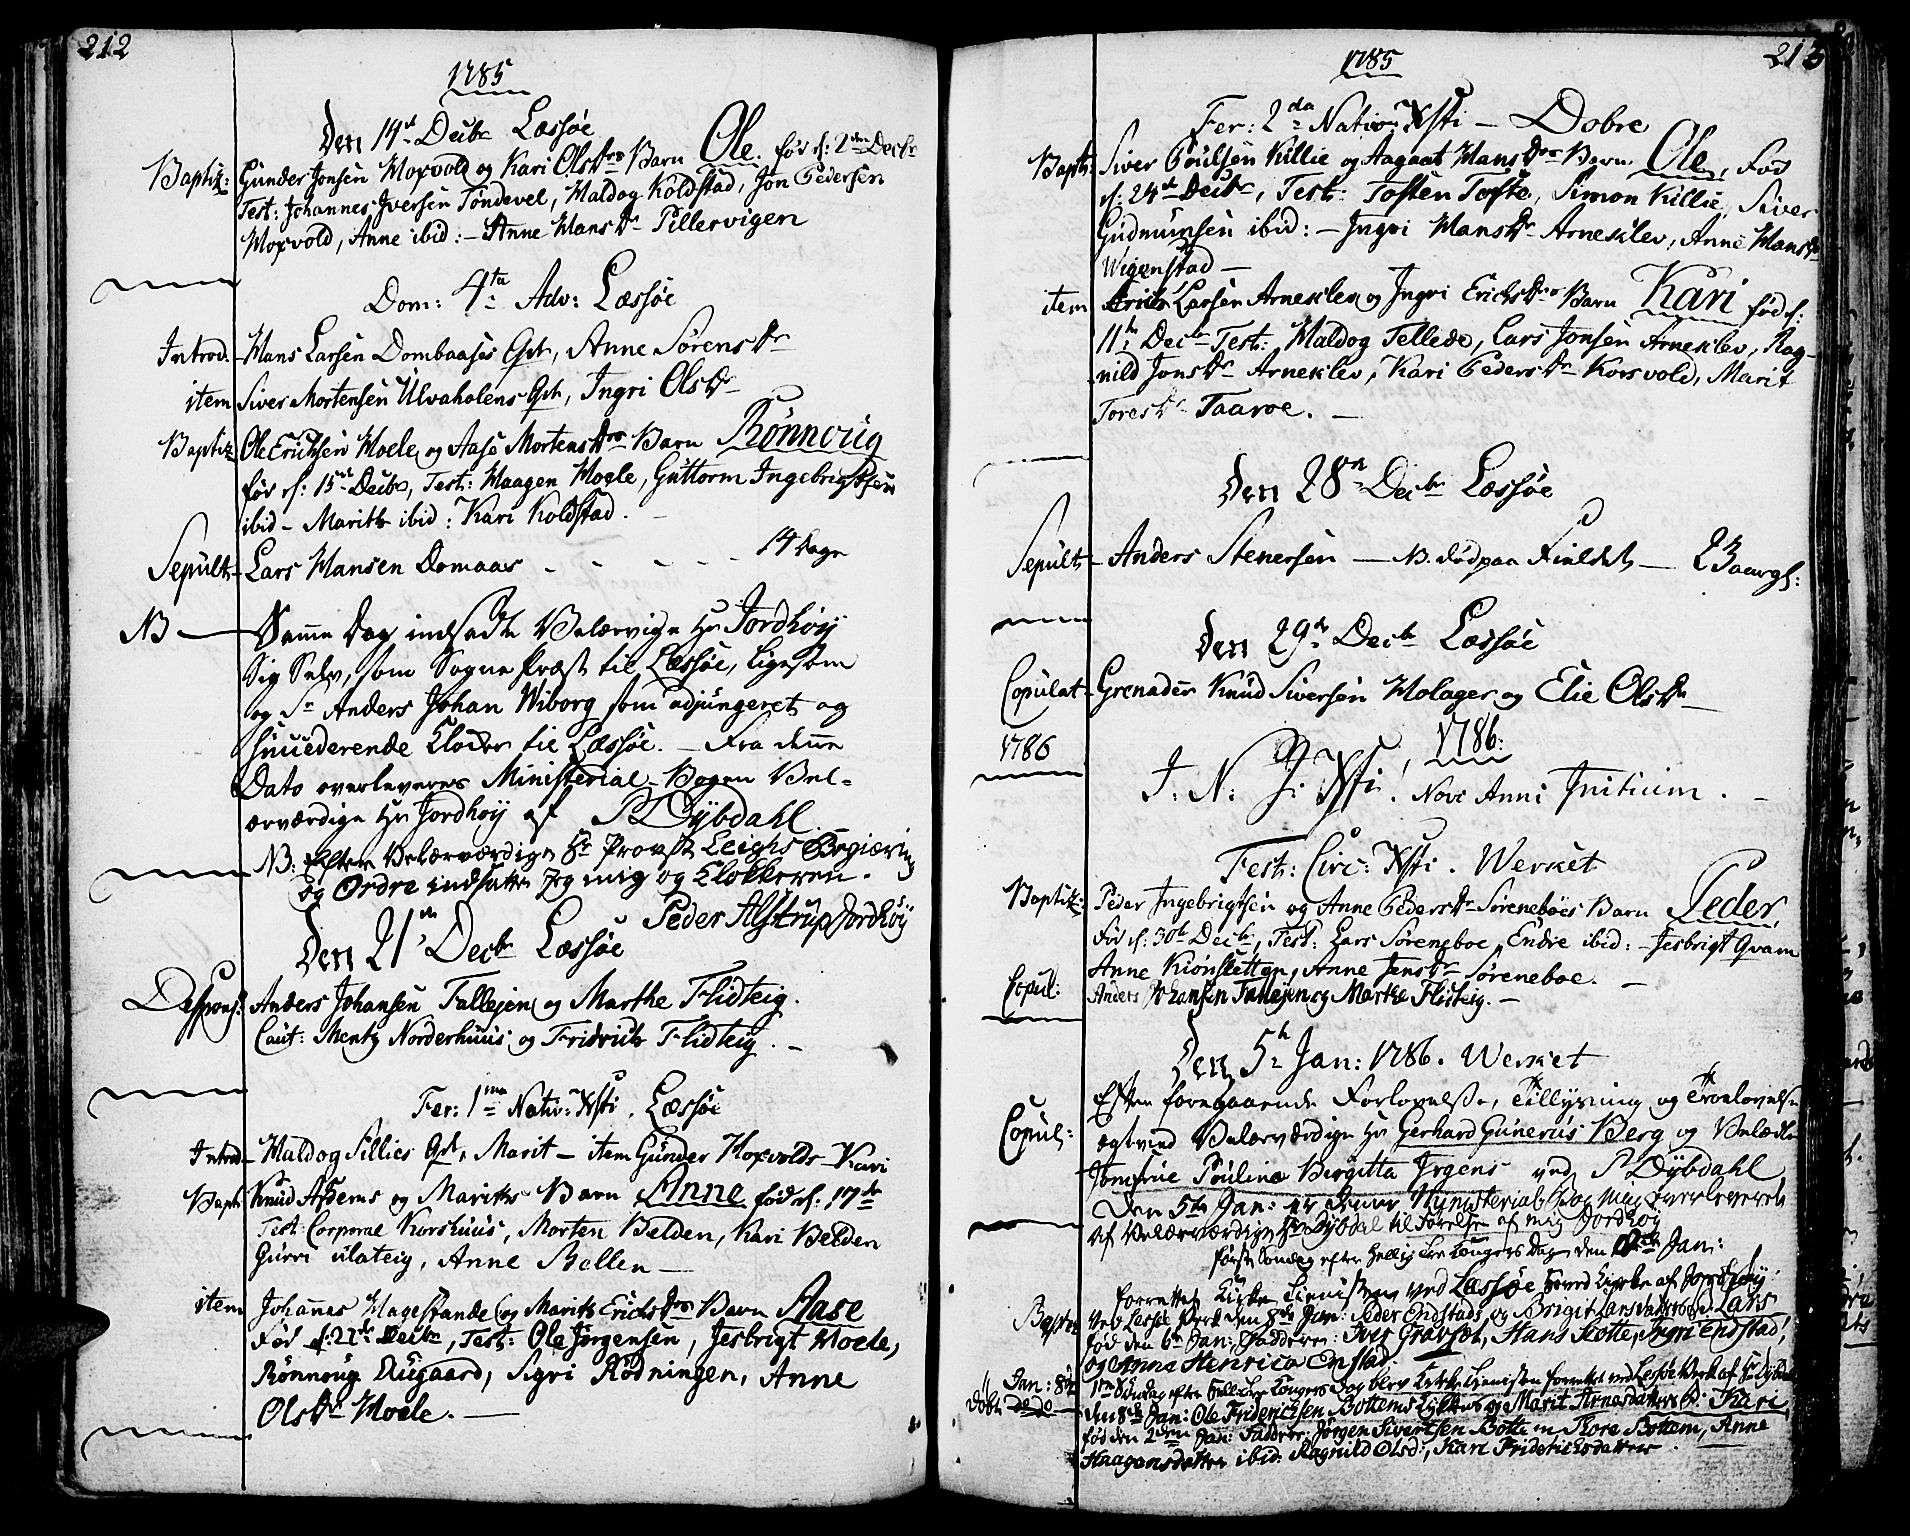 212
1785
Den 14de Decbr Læssøe
Baptiz: Gunder Jonsen Moxvold og Kari Olsdrs Barn Ole. fød d: 2den Decbr
Test: Johannes Iversen Tøndevel, Maldog Koldstad, Jon Pedersen
Moxvold, Anne ibid: - Anne Hansdr Tillervigen
Dom: 4ta Adv: Læssøe
Introd. Hans Larsen Dombaases Qv, Anne Sørensdr
item Siver Mortensen Ulvaholens Qv, Ingri Olsdr
Baptiz Ole Erichsen Moele og Aase Mortensdrs Barn Rønnoug
fød d: 15de Decbr, Test: Haagen Moele, Guttorm Ingebrigtsen
ibid - Marith ibid: Kari Koldstad.
Sepult- Lars Hansen Domaas - - - - 14 Dage
NB - Samme Dag indsadte Velærvige Hr Jordhøy
Sig Selv, som Sogne Præst til Læssøe, ligesom
og Sr Anders Johan Wiborg som adjungeret og
succederende Klocker til Læssøe. - Fra denne
Dato overleveres Ministerial-Bogen Vel-
ærværdige Hr Jordhøy af P Dybdahl
NB: Efter Velærværdige Hr Provst Leighs Begiæring
og Ordre indsatte jeg mig og Klokkeren.
Peder Alstrup Jordhøy
Den 21de Decbr Læssøe
Despons: Anders Johansen Tallejen og Marthe Flidteig.
Caut: Mentz Norderhuus og Fridrich Flidteig. -
Fer: 1ma Nativ: Xsti. Læssøe
Introd- Maldog Sillies Qv, Marit - item Gunder Moxvolds - Kari
Bapt. Knud Assems og Mariths Barn Anne fød d: 17de
Test: Corporal Korshuus, Morten Belden, Kari Belden
Gurri Ulateig, Anne Bellen -
item Johannes Hagestande og Marith Erichsdrs Barn Aase
Fød d: 21de Decbr, Test: Ole Jørgensen, Jesbrigt Moele,
Rønnoug Augaard, Sigri Rødningen, Anne
Olsdr Moele. -
213
1785
Fer: 2da Nativ: Xsti - Dobre
Bapt: Siver Poulsen Killie og Aagaat Hansdrs Barn Ole, Fød
d: 24de Decbr, Test: Tosten Tofte, Simon Killie, Siver
Gudmunsen ibid: - Ingri Hansdr Arneklev, Anne Hansdr
Wigenstad -
item Erich Larsen Arneklev og Ingri Erichsdrs Barn Kari fød d:
11te Decbr Test: Maldog Tellede, Lars Jonsen Arneklev, Rag-
nild Jonsdr Arneklev, Kari Pedersdr Korsvold, Marit
Toresdr Taaroe. -
Den 28de Decbr Læssøe
Sepult - Anders Stenersen - NB. død paa Fieldet - 23 aar gl:
Den 29de Decbr Læssøe
Copulat- Grenader Knud Siversen Holager og Elie Olsdr
1786 1786.
I: N: J: Xsti! Novi Anni Initium. -
Fest: Circ: Xsti. Werket
Baptiz: Peder Ingebrigtsen og Anne Pedersdr Sørenebøes Barn Peder,
Fød d: 30te Decbr, Test: Lars Søreneboe, Endre ibid: - Jesbrigt Qvam
Anne Kiønsletten, Anne Jensdr Søreneboe. -
Copul: Anders Johansen Tallejen og Marthe Flidteig. -
Den 5te Jan: 1786. Werket
Efter foregaaende Forlovelse, Tillysning og Troelovelse
Copul: egtvied Velærværdige Hr Gerhard Gunerus Berg og Velædle
Jomfrue Pouline Bergitta Irgens ved P Dybdahl
Den 5te Jan: er denne Mynisterial Bog mig overleveret
af Velærværdige Hr Dybdal til Førelse af mig Jordhøy
første Søndag efter Hellig Tre Kongers Dag den 8de Jan:
forrettet Kirke Tienisten ved Læssøe Hoved Kirke af Jordhøy.
Baptiz Ved Lessøe Verk den 8de Jan: Peder Endstads og Brigit Larsdatters b: Lars
fød den 6te Jan: Faddere: Iver Gravset, Hans Slotte, Ingri Endstad,
og Anna Henrica Enstad.
Jan: 8de 1ste Søndag efter Hellig Tre Kongers Dag blev Kirke Tienisten forrettet ved Lessøe Verk af Hr Dybdal
døbt dodo den 8de Jan: Ole Friderichsen Bottems og Marit Arnesdatters b: Kari
fød den 2den Jan: Faddere: Jørgen Sivertsen Bottem Tore Bottem, Anne
Haagensdatter ibid. Ragnild Olsd:, Kari Friderichsdatter.